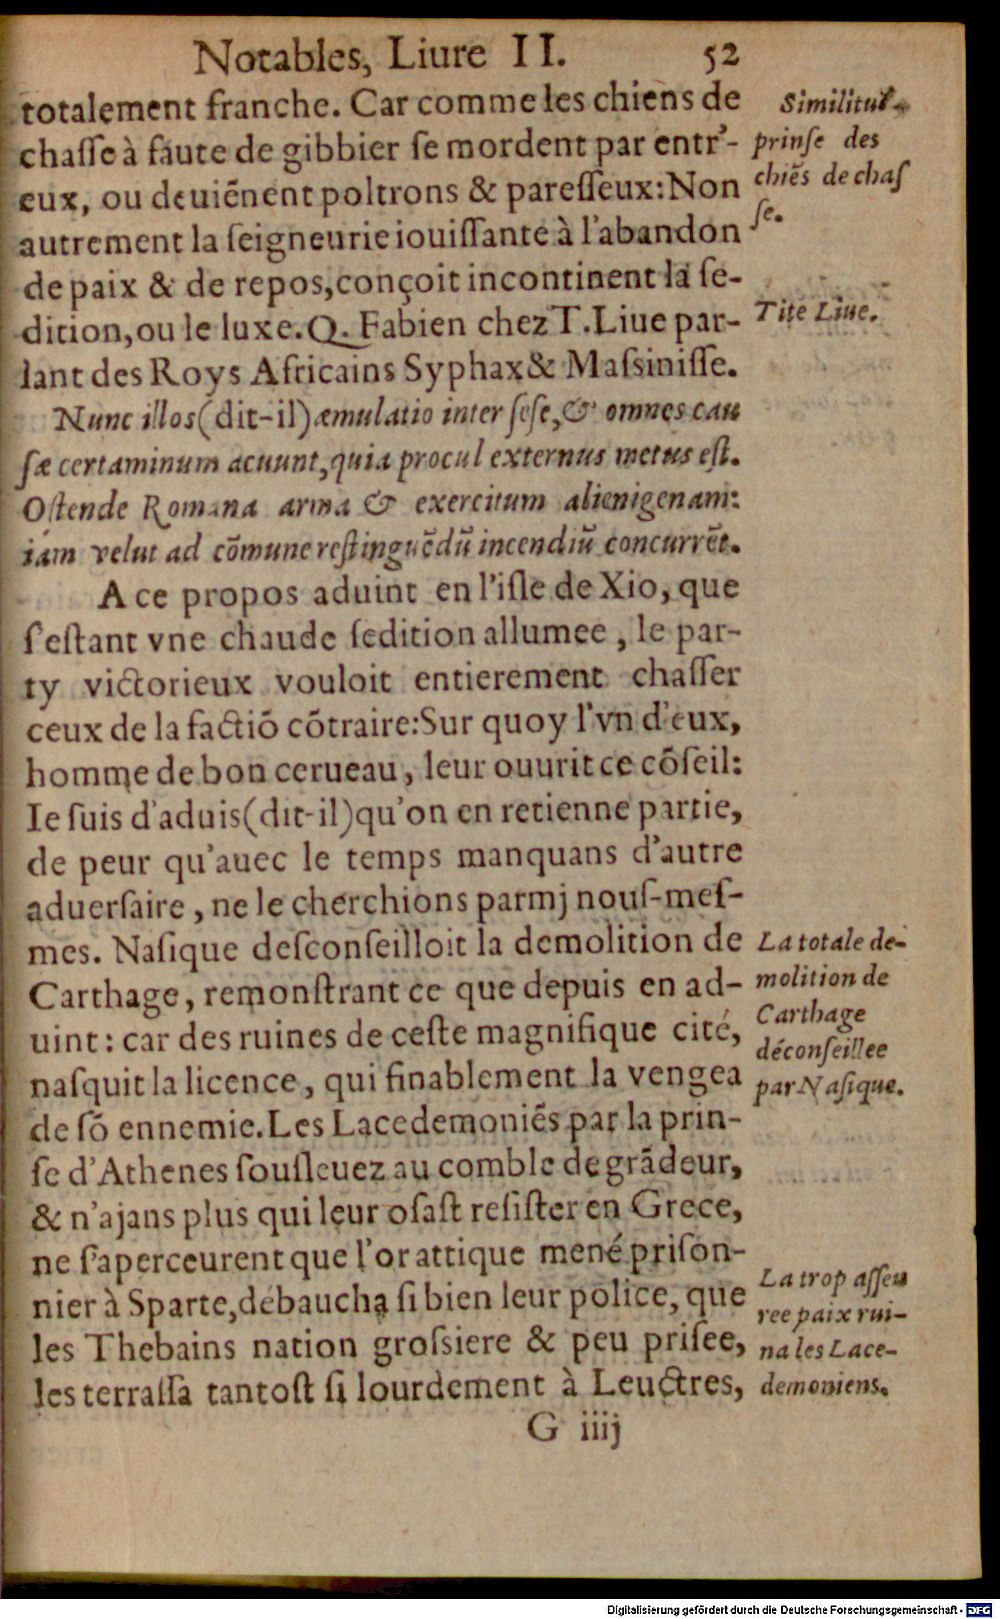 Notables, Liure II. 52
totalement franche. Car comme les chiens de
chaſſe à faute de gibbier ſe mordent par entr'-
eux, ou deuiẽnent poltrons & pareſſeux: Non
autrement la ſeigneurie iouiſſante à l'abandon
de paix & de repos, conçoit incontinent la ſe-
dition, ou le luxe. Q. Fabien chez T. Liue par-
lant des Roys Africains Syphax & Maſsiniſſe.
Nunc illos (dit-il) æmulatio inter ſeſe, & omnes cau
ſæ certaminum acuunt, quia procul externus metus eſt.
Oſtende Romana arma & exercitum alienigenam:
iam velut ad cõmune reſtinguẽdũ incendiũ concurrẽt.
A ce propos aduint en l'iſle de Xio, que
s'eſtant vne chaude ſedition allumee, le par-
ty victorieux vouloit entierement chaſſer
ceux de la factiõ cõtraire: Sur quoy l'vn d'eux,
homme de bon cerueau, leur ouurit ce cõſeil:
Ie ſuis d'aduis (dit-il) qu'on en retienne partie,
de peur qu'auec le temps manquans d'autre
aduerſaire, ne le cherchions parmj nouſ-meſ-
mes. Naſique deſconſeilloit la demolition de
Carthage, remonſtrant ce que depuis en ad-
uint: car des ruines de ceſte magnifique cité,
naſquit la licence, qui finablement la vengea
de ſõ ennemie. Les Lacedemoniẽs par la prin-
ſe d'Athenes ſouſleuez au comble de grãdeur,
& n'ajans plus qui leur oſaſt reſiſter en Grece,
ne ſ'aperceurent que l'or attique mené priſon-
nier à Sparte, débaucha ſi bien leur police, que
les Thebains nation groſsiere & peu priſee,
les terraſſa tantoſt ſi lourdement à Leuctres,
G iiij
Similitud.
prinſe des
chiẽs de chaſ
ſe.
Tite Liue.
La totale de-
molition de
Carthage
déconſeillee
par Naſique.
La trop aſſeu
ree paix rui-
na les Lace-
demoniens.
Digitalisierung gefördert durch die Deutsche Forschungsgemeinschaft - DFG